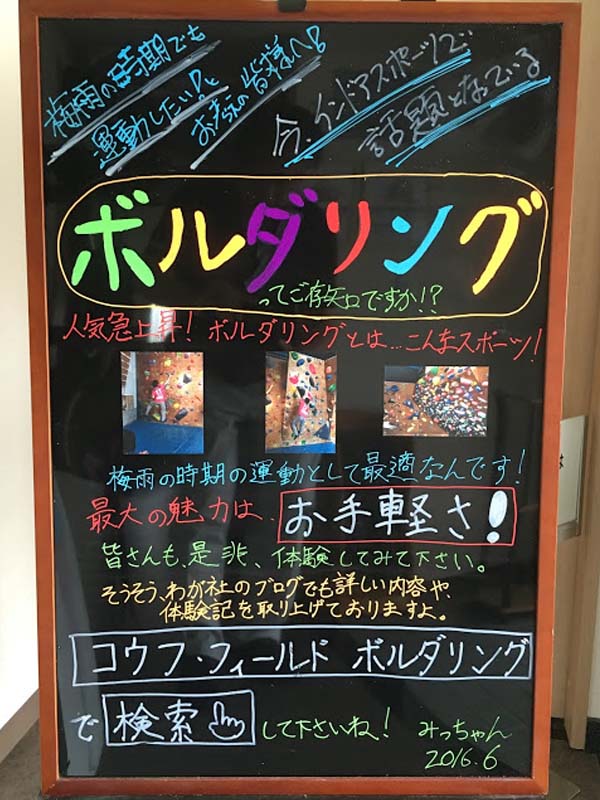 梅雨の時期でも
運動したい!と
お考えの皆様へ!
今、インドアスポーツで
話題となっている
ボルダリング
ってご存知ですか!?
人気急上昇!ボルダリングとは…こんなスポーツ!
梅雨の時期の運動として最適なんです!
最大の魅力は、お手軽さ!
皆さんも、是非、体験してみて下さい。
そうそう、わが社のブログでも詳しい内容や、
体験記を取り上げておりますよ。
コウフ・フィールド ボルダリング
で 検索 して下さいね! みっちゃん
2016.6